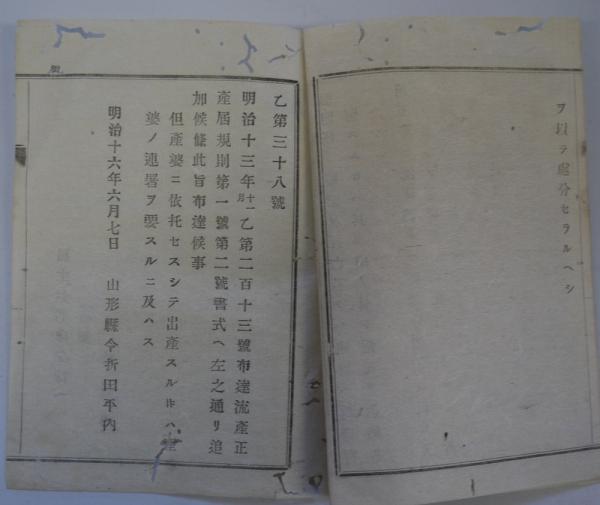 ヲ以テ處分セラルヘシ
乙第三十八號
明治十三年十一月乙第二百十三號布達流産正
産屆規則第一號第二號書式ヘ左之通リ追
加候條此旨布達候事
但産婆ニ依托セスシテ出産スル時ハ産
婆ノ連署ヲ要スルニ及ハス
明治十六年六月七日 山形縣令折田平内